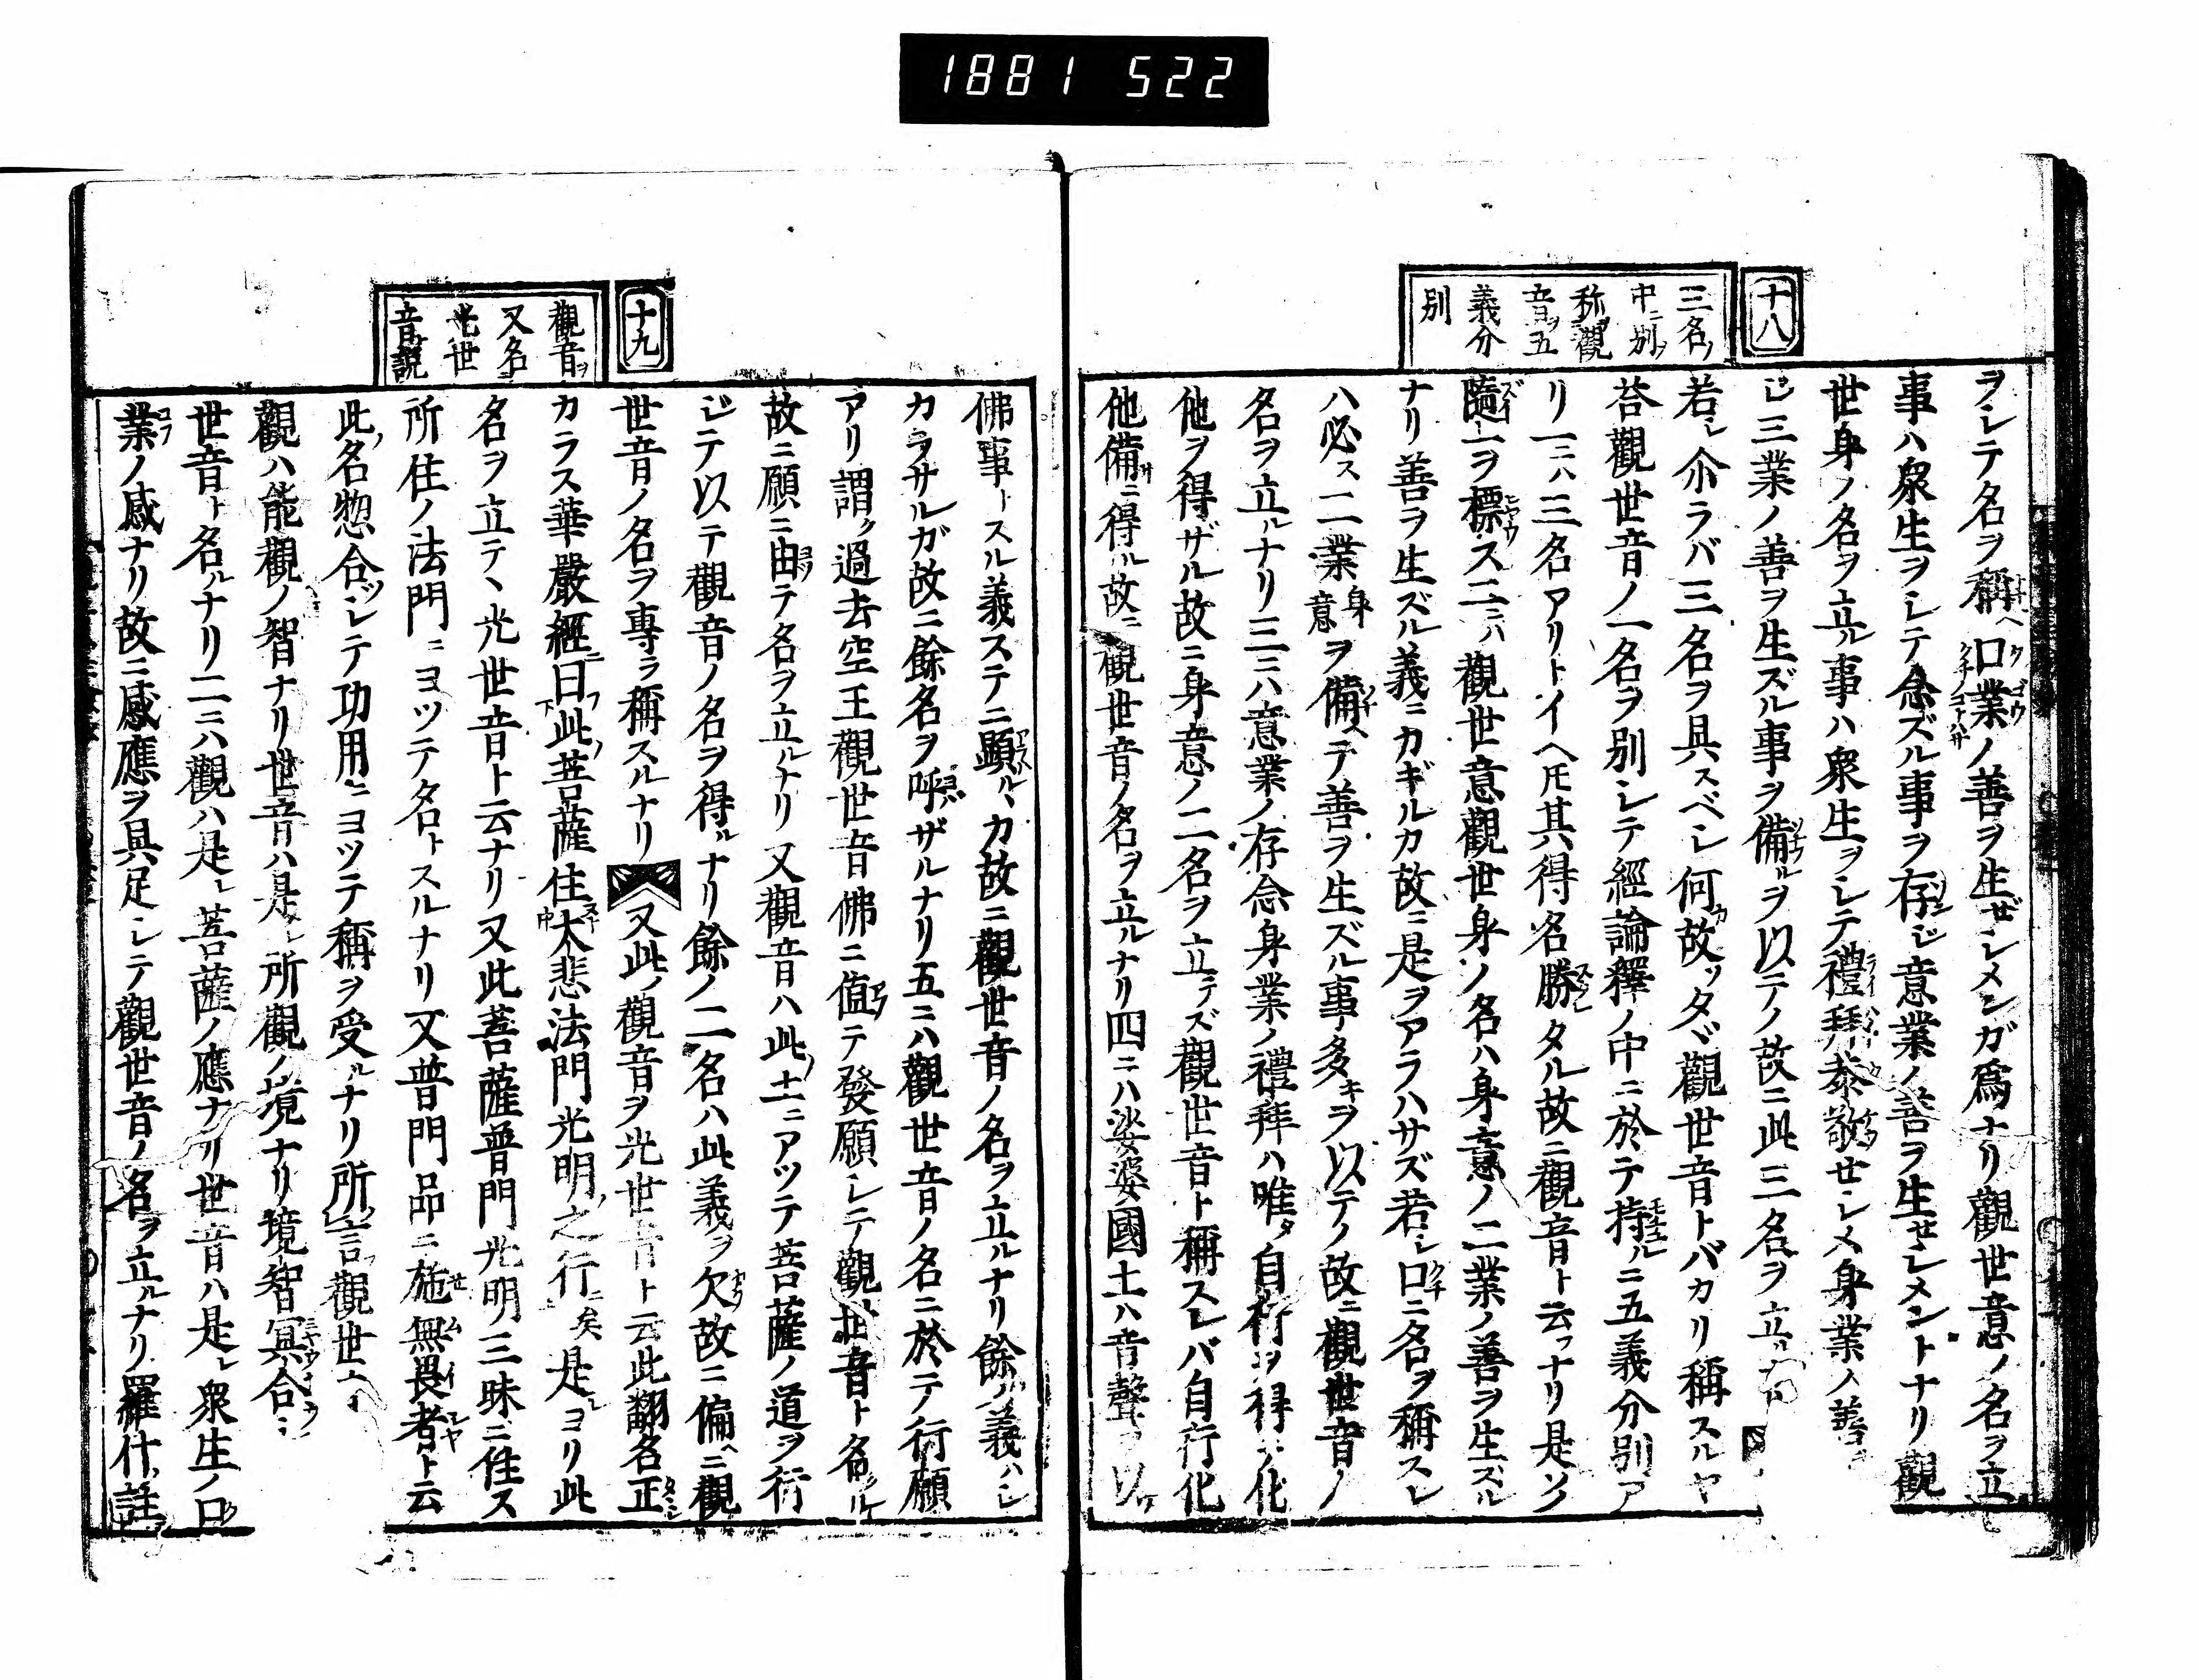 1881 522
十八
三名ノ
中ニ別ノ
称觀
音ヲ五
義分
別
ヲシテ名ヲ稱ヘ口業ノ善ヲ生ゼシメンガ爲ナリ觀世意ノ名ヲ立
事ハ衆生ヲシテ念ズル事ヲ存ジ意業ノ善ヲ生ゼシメントナリ觀
世身ノ名ヲ立ル事ハ衆生ヲシテ禮拜恭敬セシメ身業ノ善
ジ三業ノ善ヲ生ズル事ヲ備ルヲ以テノ故ニ此三名ヲ立ル
若シ尒ラバ三名ヲ具スベシ何故ッタヾ觀世音トバカリ稱スルヤ
荅觀世音ノ一名ヲ別シテ經論釋ノ中ニ於テ持ルニ五義分別ア
リ一ニハ三名アリトイヘ𪜈其得名勝タル故ニ觀音ト云フナリ是ソノ
隨一ヲ標ス二ニハ觀世意觀世身ノ名ハ身意ノ二業ノ善ヲ生ズル
ナリ善ヲ生ズル義ニカギルカ故ニ是ヲアラハサズ若シ口ニ名ヲ稱スレ
ハ必ス二業身意ヲ備ヘテ善ヲ生ズル事多キヲ以テノ故ニ觀世音ノ
名ヲ立ルナリ三ニハ意業ノ存念身業ノ禮拜ハ唯タ自行ヲ得テ化
他ヲ得ザル故ニ身意ノ二名ヲ立テズ觀世音ト稱スレバ自行化
他備ニ得ル故ニ觀世音ノ名ヲ立ルナリ四ニハ娑婆國土ハ音聲ヲ以テ
十九
觀音ヲ
又名
光世
音説
佛事トスル義ステニ顯ルヽカ故ニ觀世音ノ名ヲ立ルナリ餘ノ義ハシ
カラサルガ故ニ餘名ヲ呼ザルナリ五ニハ觀世音ノ名ニ於テ行願
アリ謂ク過去空王觀世音佛ニ値テ發願シテ觀世音ト名ル
故ニ願ニ由テ名ヲ立ルナリ又觀音ハ此ノ土ニアツテ菩薩ノ道ヲ行
ジテ以テ觀音ノ名ヲ得ルナリ餘ノ二名ハ此義ヲ欠故ニ偏ヘニ觀
世音ノ名ヲ專ラ稱スルナリ又此ノ觀音ヲ光世音ト云此翻名正
カラス華嚴經ニ曰ク下此ノ菩薩住大悲法門光明之行ニ矣是レヨリ此
名ヲ立テヽ光世音ト云ナリ又此菩薩普門光明三昧ニ住ス
所住ノ法門ニヨツテ名トスルナリ又普門品ニ施無畏者ト云
此ノ名惣合シテ功用ニヨツテ稱ヲ受ルナリ所言觀世
觀ハ能觀ノ智ナリ世音ハ是レ所觀ノ境ナリ境智冥合
世音ト名ルナリ二ニハ觀ハ是レ菩薩ノ應ナリ世音ハ是レ衆生ノ口
業ノ感ナリ故ニ感應ヲ具足シテ觀世音ノ名ヲ立ルナリ羅什註